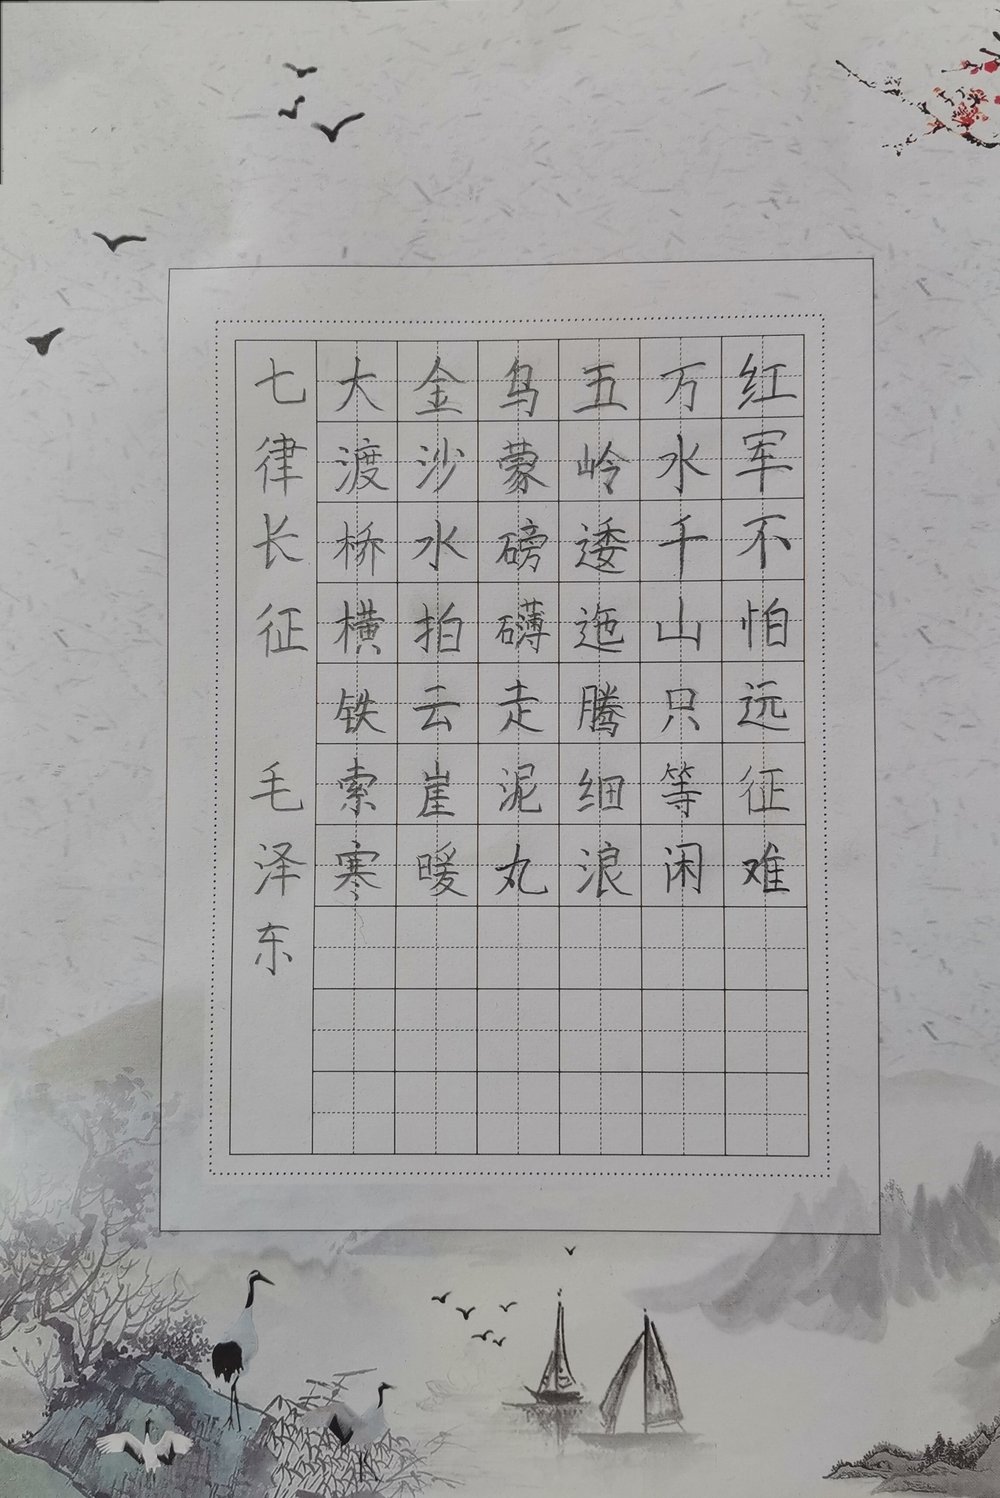 红军不怕远征难
万水千山只等闲
五岭逶迤腾细浪
乌蒙磅礴走泥丸
金沙水拍云崖暖
大渡桥横铁索寒
七律长征 毛泽东